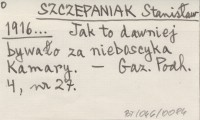 SZCZEPANIAK Stanisław
1916... Jak to dawniej
bywało za nieboscyka
Kamary. — Gaz. Podh.
4, nr 27.